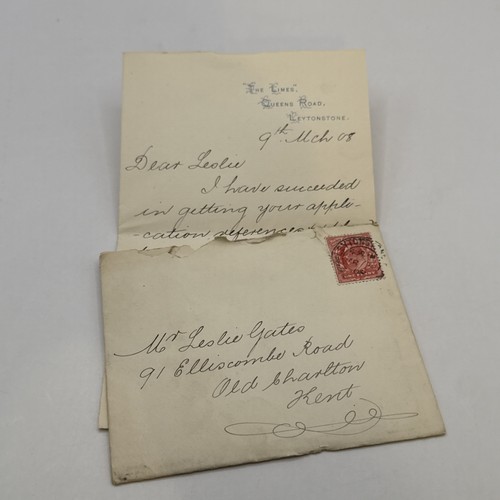 "The Limes",
Queens Road,
Leytonstone.
9th Mch 08
Dear Leslie
I have succeeded
in getting your appli-
-cation references
Mr Leslie Gates
91 Elliscombe Road
Old Charlton
Kent